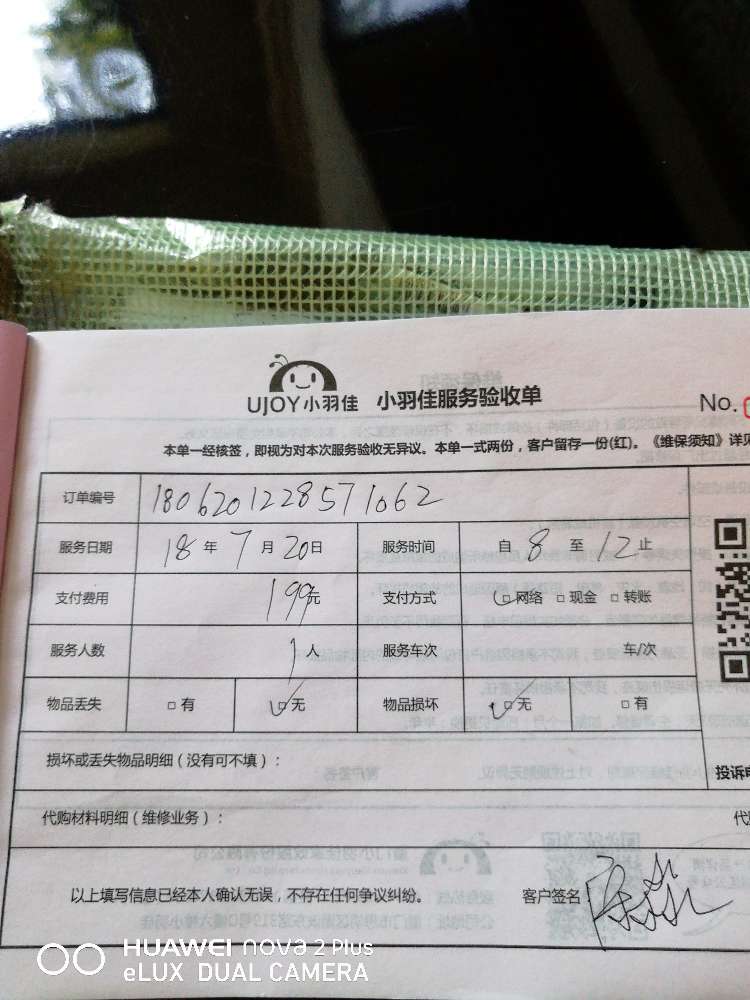 UJOY小羽佳 小羽佳服务验收单
No.
本单一经核签，即视为对本次服务验收无异议。本单一式两份，客户留存一份(红)。《维保须知》详见
订单编号 1806201228571062
服务日期 18 年 7 月 20 日 服务时间 自 8 至 12 止
支付费用 199元 支付方式 □网络 □现金 □转账
服务人数 1 人 服务车次 车/次
物品丢失 □有 □无 物品损坏 □无 □有
损坏或丢失物品明细（没有可不填）：
投诉电
代购材料明细（维修业务）：
代购
以上填写信息已经本人确认无误，不存在任何争议纠纷。 客户签名
HUAWEI nova 2 Plus
eLUX DUAL CAMERA